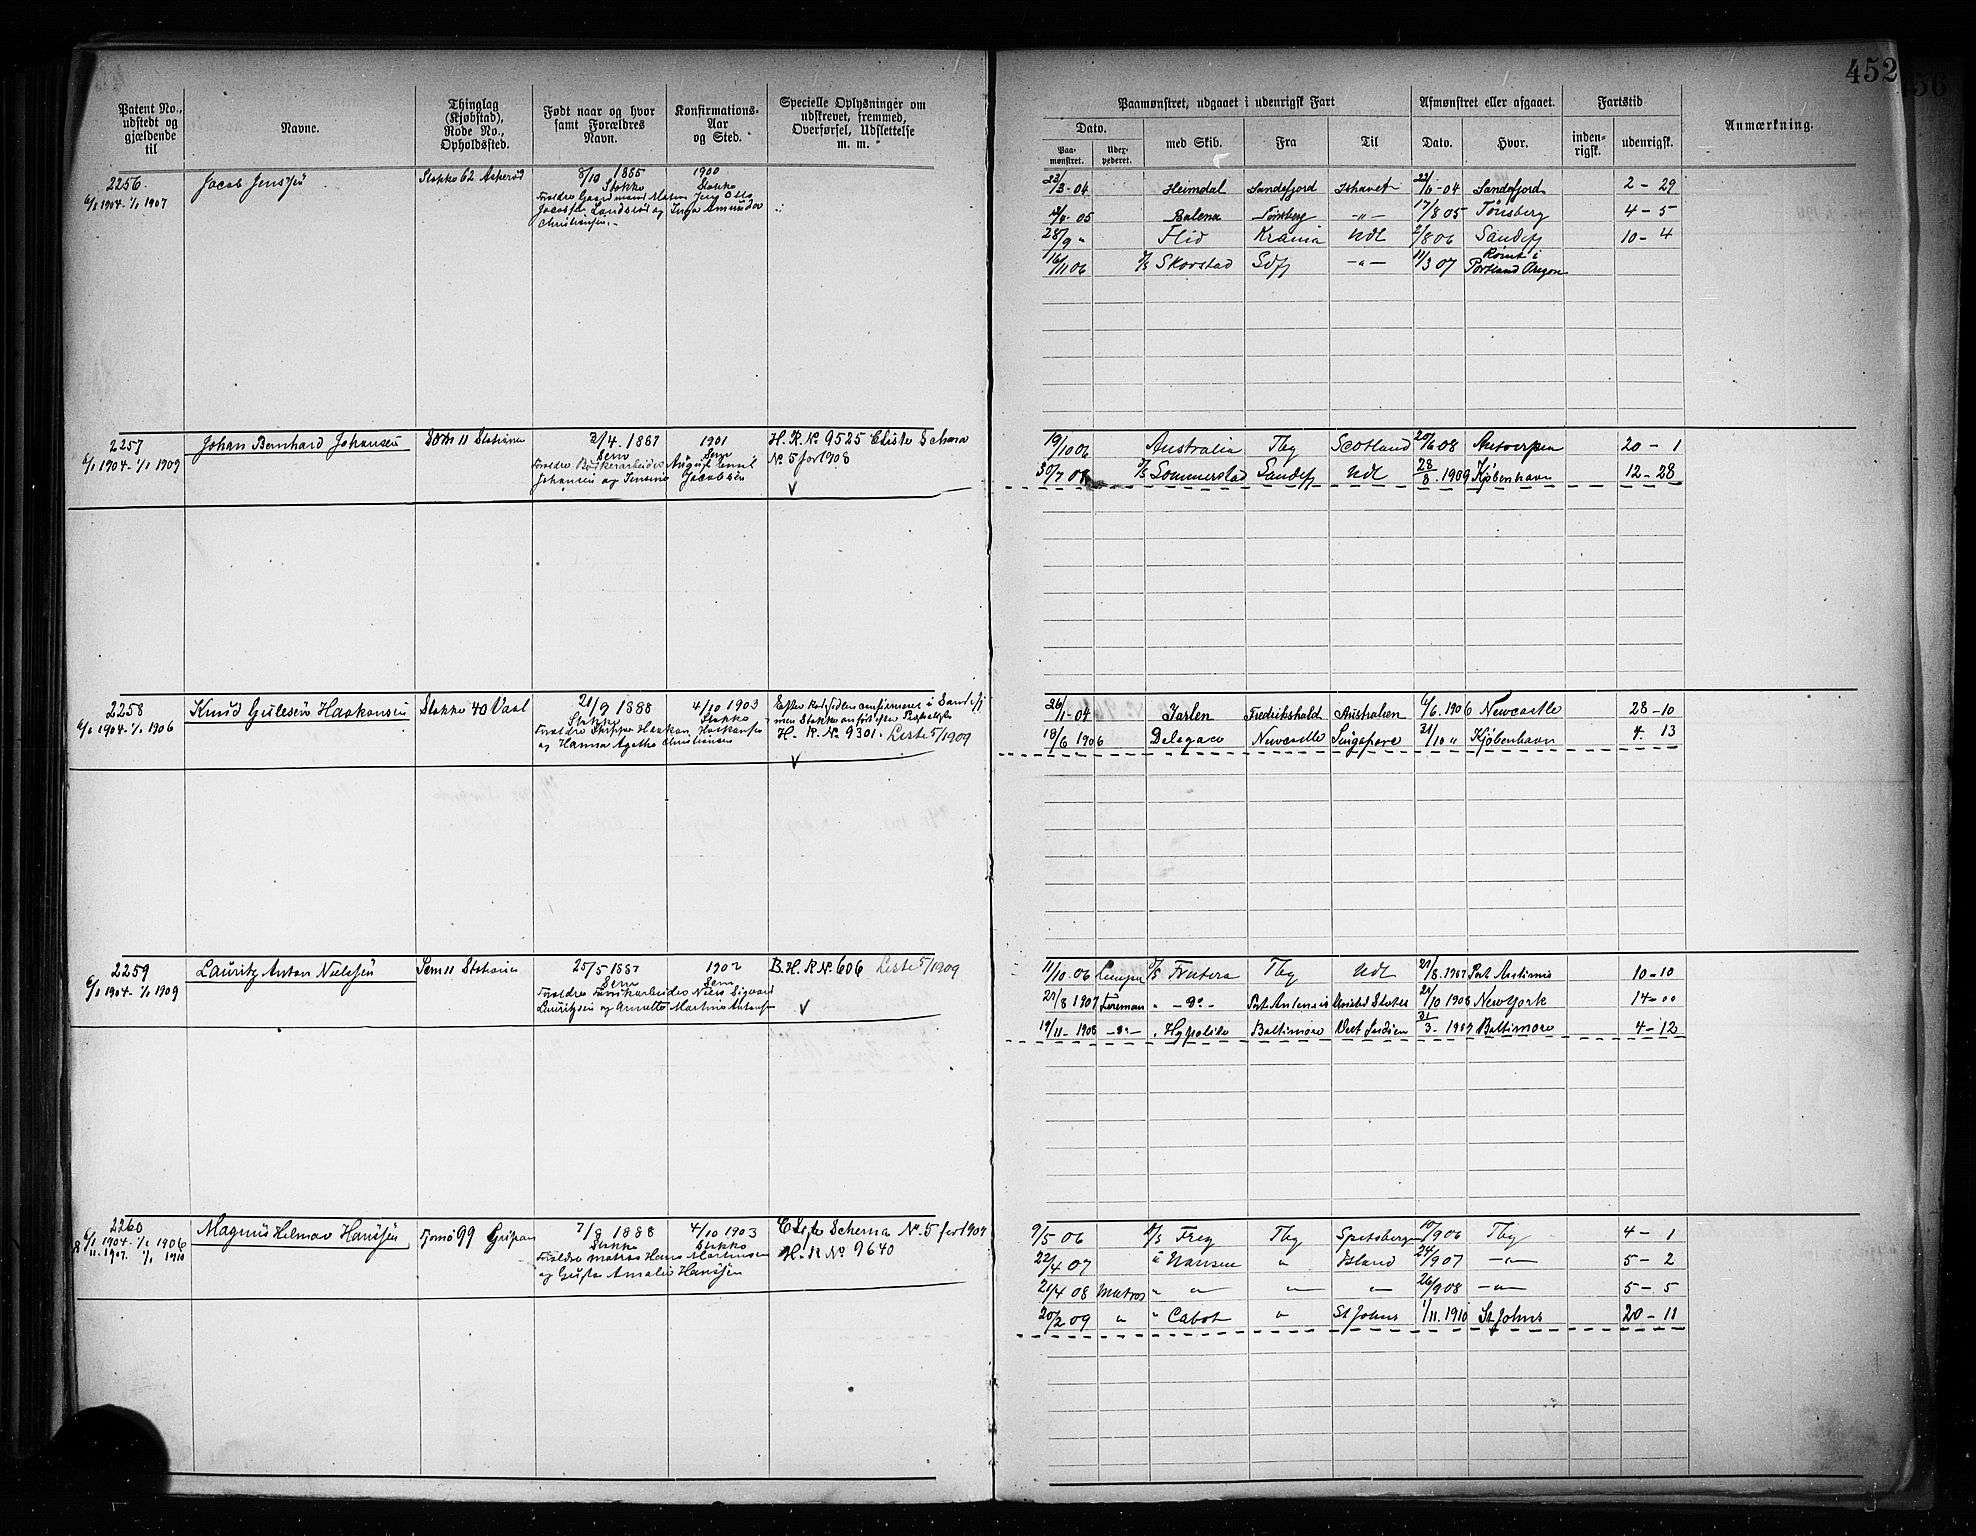 452
456
Patent No., udstedt og gjældende til
Navne.
Thinglag (Kjøbstad), Rode No., Opholdssted.
Født naar og hvor samt Forældres Navn.
Konfirmations-Aar og Sted.
Specielle Oplysninger om udskrevet, fremmed, Overførsel, Udslettelse m. m.
Paamønstret, udgaaet i udenrigsk Fart
Afmønstret eller afgaaet.
Fartstid
Anmærkning.
Dato.
Paa-mønstret.
med Skib.
Fra
Til
Dato.
Hvor.
inden-rigsk.
udenrigsk.
2256.
6/1 1904-1/1 1907
Jacob Jenssen
Stokke 62 Askerød
8/10 1885
Stokke
1900
Stokke
Christiansen.
23/3-04 Heimdal Sandefjord Ishavet 22/6-04 Sandefjord 2-29
05 Balena Tønsberg -"- 17/8 05 Tønsberg 4-5
28/9 " Flid Krania Udl 2/8 06 Sandefj 10-4
16/11 06 Skorstad Sdfj -"- 11/3 07 Rømt i Portland Oregon
2257
6/1 1904-1/1 1909
Johan Bernhard Johansen
Sem 11
2/4. 1887
Sem
1901
Sem
Johansen og
Jacobsen
H. R. No 9525 Liste Schema
No 5 for 1908
19/10 06 Australia Tbg Scotland 20/6 08 Antwerpen 20-1
30/7 08 Sommerstad Sandefj Udl 28/8. 1909 Kjøbenhavn 12-28
2258
6/1 1904-1/1 1906
Knud Gulesen Haakonsen
Stokke 40 Vaal
21/9 1888
Stokke
4/10 1903
Stokke
Forældre Skipper Haakon Haakonsen
og Hanna Agathe Christiansen
H. R. No 9301. Liste 5/1909
26/1-04 Jarlen Fredrikshald Australien 6/6. 1906 Newcastle 28-10
18/6 1906 Newcastle Singapore 31/10 " Kjøbenhavn 4. 13
2259
6/1 1904-1/1 1909
Lauritz Anton Nielssen
Sem 11
25/5 1887
Sem
1902
Sem
Forældre Niels Sigvard
Lauritzen og Annette Martine
B. H. R No 606 Liste 5/1909
11/10.06 Frutera Tbg Udl 1907 Port Antonio 10-10
27/8 1907 Fireman " -Do- Port Antonio United States 1908 New York 14-00
19/11-1908 -"- Baltimore Vest Indien 31/3-1909 Baltimore 4-12
2260
6/1 1904-1/1 1906
11. 1907. 1/1 1910
Magnus Hilmar Hanssen
Tjømø 99 Gripan
7/8 1888
Stokke
4/10 1903
Stokke
Forældre matros Hans Martinsen
og Gusta Amalie Hanssen
Liste Schema No. 5 for 1909
H. R No 9640
9/5 06 Frey Tbg Spitsbergen 906 Tbg 4-1
22/4 07 Nansen " Island 24/9 07 -"- 5-2
21/4 08 Matros " " " " 26/9 08 -"- 5-5
20/2 09 " " Cabot " St Johns 1/11. 1910 St Johns 20-11